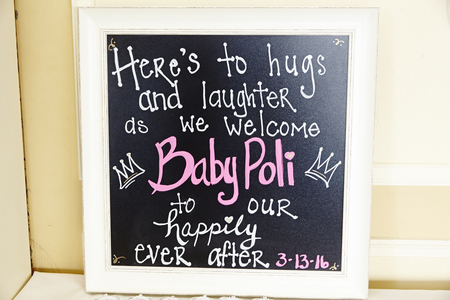 Here's to hugs
and laughter
as we welcome
Baby Poli
to our
happily
ever after 3-13-16